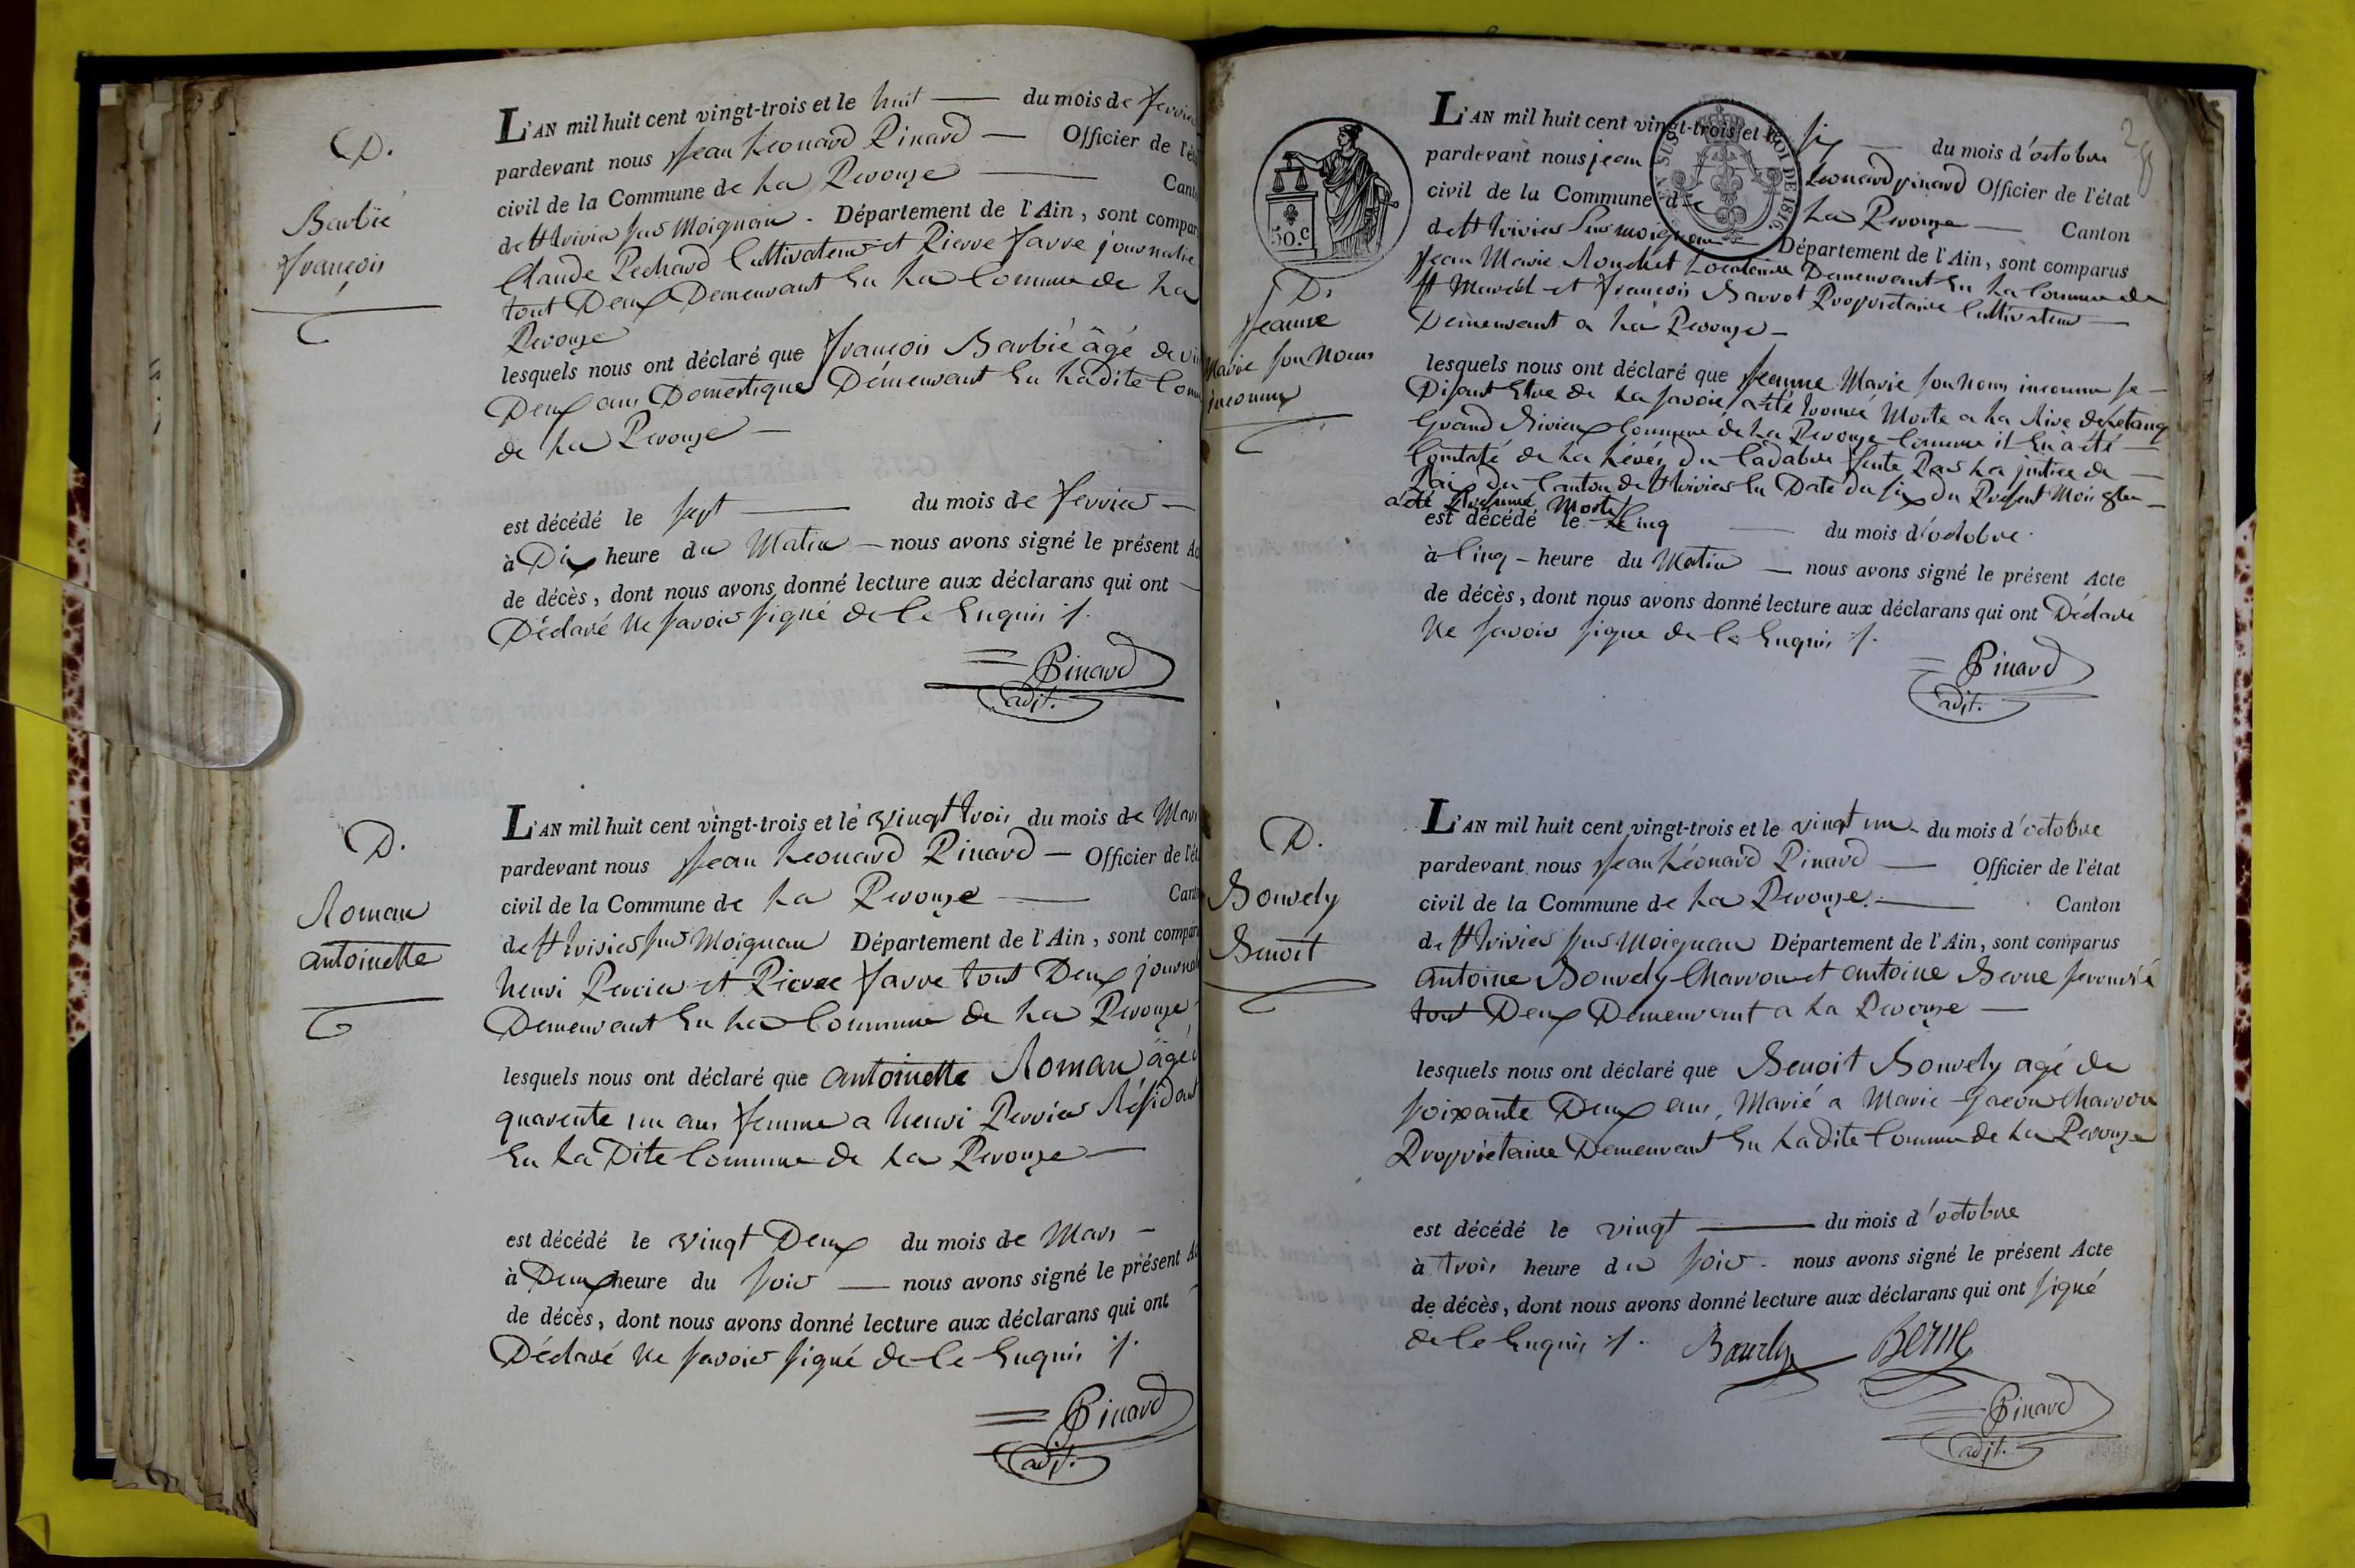 D.
Barbié
françois
L'AN mil huit cent vingt-trois et le huit du mois de fevrie
pardevant nous Jean Leonard Pinard Officier de l'ét
civil de la Commune de La Perouze Cant
de St trivier sur Moignan. Département de l'Ain, sont compar
Claude Pechard Cultivateur et Pierre favre journalie
tout Deux Demeurant En La Commune de La
Perouze
lesquels nous ont déclaré que françois Barbié âgé de vin
Deux ans Domestique Demeurant En Ladite Com
de La Perouze
est décédé le sept du mois de fevrier
à Dix heure du Matin nous avons signé le présent Ac
de décès, dont nous avons donné lecture aux déclarans qui ont
Déclaré Ne savoir signé de Ce Enquis ./.
Pinard
adjt.
D.
Roman
antoinette
L'AN mil huit cent vingt-trois et le vingt trois du mois de Mars
pardevant nous Jean Leonard Pinard Officier de l'ét
civil de la Commune de La Perouze Cant
de St trivier sur Moignan Département de l'Ain, sont compar
henri Perrier et Pierre favre tout Deux journal
Demeurant En La Commune de La Perouze
lesquels nous ont déclaré que antoinette Roman âgé
quarente un ans femme a henri Perrier Résidant
En La Dite Commune de La Perouze
est décédé le vingt Deux du mois de Mars
à Deux heure du soir nous avons signé le présent Ac
de décès, dont nous avons donné lecture aux déclarans qui ont
Déclaré Ne savoir signé de Ce Enquis ./.
Pinard
adjt.
50.c
D.
Jeanne
Marie son Nom
inconnu
L'AN mil huit cent vingt-trois et le six du mois d'octobre
pardevant nous jean Léonard pinard Officier de l'état
civil de la Commune de La Perouze Canton
de St trivier Sur moignan Département de l'Ain, sont comparus
Jean Marie Demeurant En La Commune de
St Marcel et françois Barrot Propriétaire Cultivateur
Demeurant a La Perouze
lesquels nous ont déclaré que Jeanne Marie son Nom inconnu se
Disant Etre de La savoie, a été trouvé Morte a La Rive de Letang
Grand Rivieux Commune de La Perouze Comme il En a été
Constaté de La Levée du Cadabre faite Par La justice de
Paix du Canton de St trivier En Date du six du Present Mois
a été Morte
est décédé le Cinq du mois d'octobre
à Cinq heure du Matin nous avons signé le présent Acte
de décès, dont nous avons donné lecture aux déclarans qui ont Déclaré
Ne savoir signe de Ce Enquis ./.
Pinard
adjt.
D.
Bourely
Benoit
L'AN mil huit cent vingt-trois et le vingt un du mois d'octobre
pardevant nous Jean Léonard Pinard Officier de l'état
civil de la Commune de La Perouze. Canton
de St trivier sur Moignan Département de l'Ain, sont comparus
antoine Bourely Charron et antoine Berne
tout Deux Demeurant a La Perouze
lesquels nous ont déclaré que Benoit Bourely agé de
soixante Deux ans, Marié a Marie Charron
Propriétaire Demeurant En Ladite Commune de La Perouze
est décédé le vingt du mois d'octobre
à trois heure du soir. nous avons signé le présent Acte
de décès, dont nous avons donné lecture aux déclarans qui ont signé
de Ce Enquis ./. Bourely Berne
Pinard
adjt.